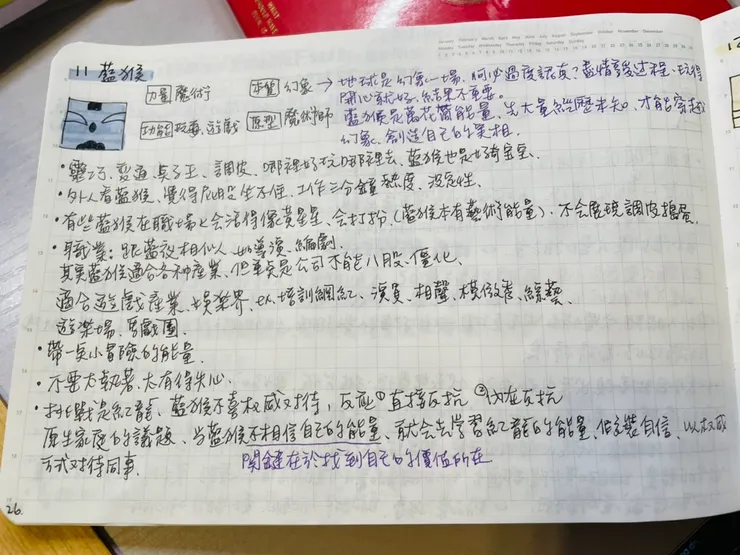 11 藍猴
力量 魔術
本質 幻象 → 地球是幻象一場、何必過度認真?盡情享受过程、玩得
開心就好、結果不重要。
功能 玩.遊戲
原型 魔術師
藍猴是萬花筒能量、先大量經歷未知、才能穿越
幻象、創造自己的實相.
• 靈巧、變通、点子王、調皮、哪裡好玩哪裡去、藍猴也是好奇宝宝.
• 外人看藍猴、覺得屁股坐不住、工作三分鐘熱度、沒定性.
• 有些藍猴在職場上会活得像黃星星、会打扮、(藍猴本有藝術能量)、不会展現調皮搗蛋.
• 職業:跟藍夜相似、如導演、編劇.
其實藍猴適合各种產業、但重点是公司不能八股、僵化、
適合遊戲產業、娛楽界、ex.培訓網紅、演員、相聲、模仿秀、綜藝、
遊楽場、馬戲團.
• 帶一点小冒險的能量.
• 不要太執著、太有得失心.
• 挑戰是紅龍、藍猴不喜权威对待、反应①直接反抗 ②內在反抗
原生家庭的議題、当藍猴不相信自己的能量、就会去学習紅龍的能量、假裝自信、以权威
方式对待同事. 関鍵在於找到自己的價值所在
26.